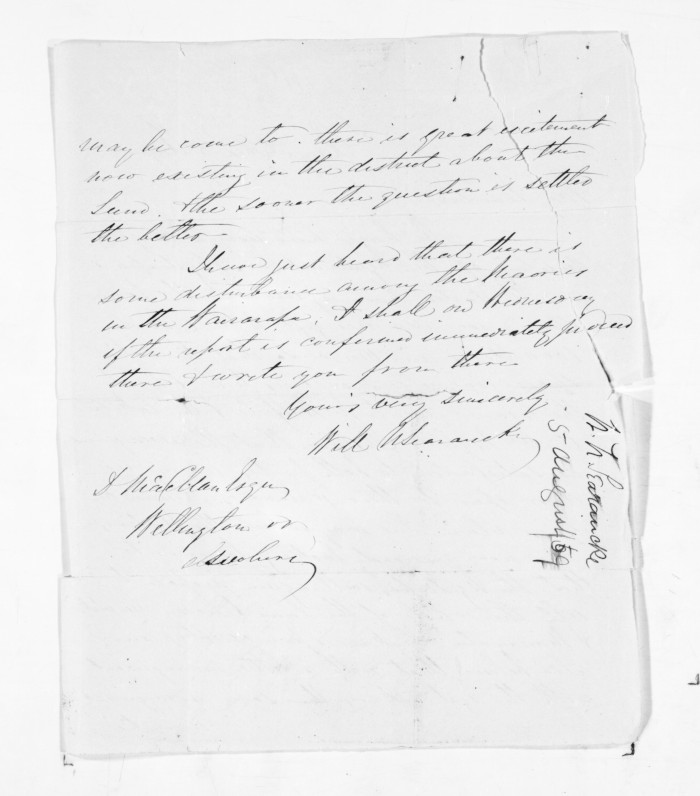 may be come to. there is great excitement
now existing in the district about the
Land. & the sooner the question is settled
the better.
I have just heard that there is
some disturbance among the Maories
in the Wairarapa, I shall on Wednesday
if the report is confirmed immediately proceed
there & write you from there
Yours very Sincerely
Will N Searancke
D MacLean Esqre
Wellington or
W. N. Searancke
5 August/59